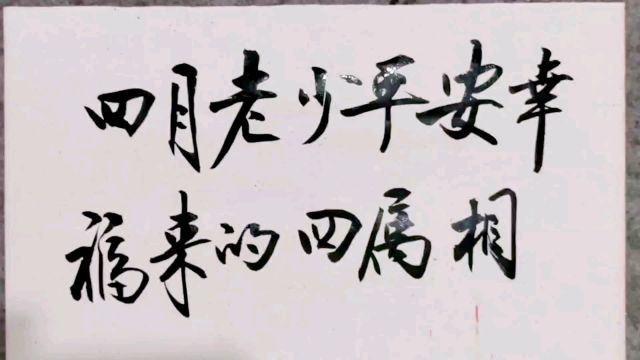 四月老少平安幸
福来的四属相